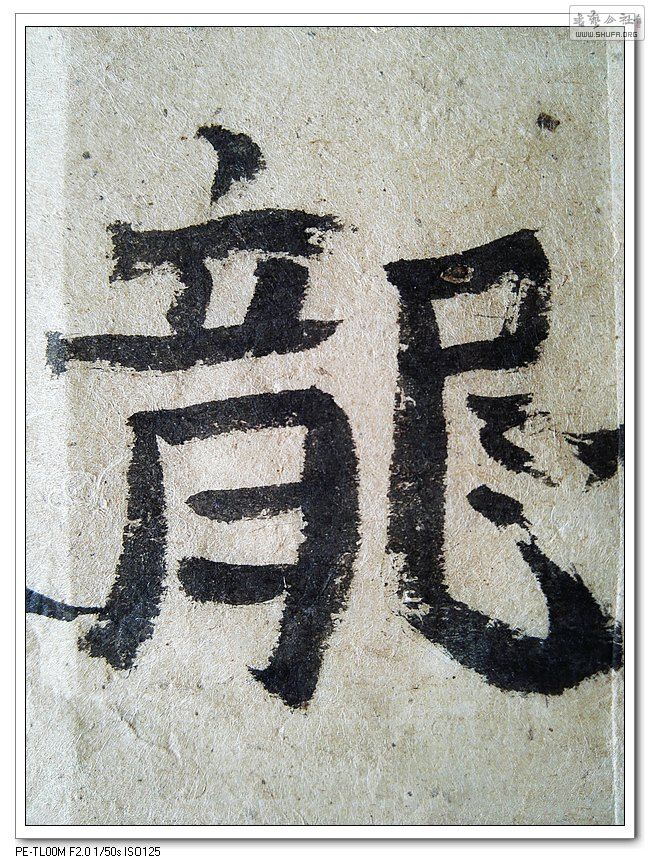 書藝公社
WWW.SHUFA.ORG
龍
PE-TL00M F2.0 1/50s ISO125